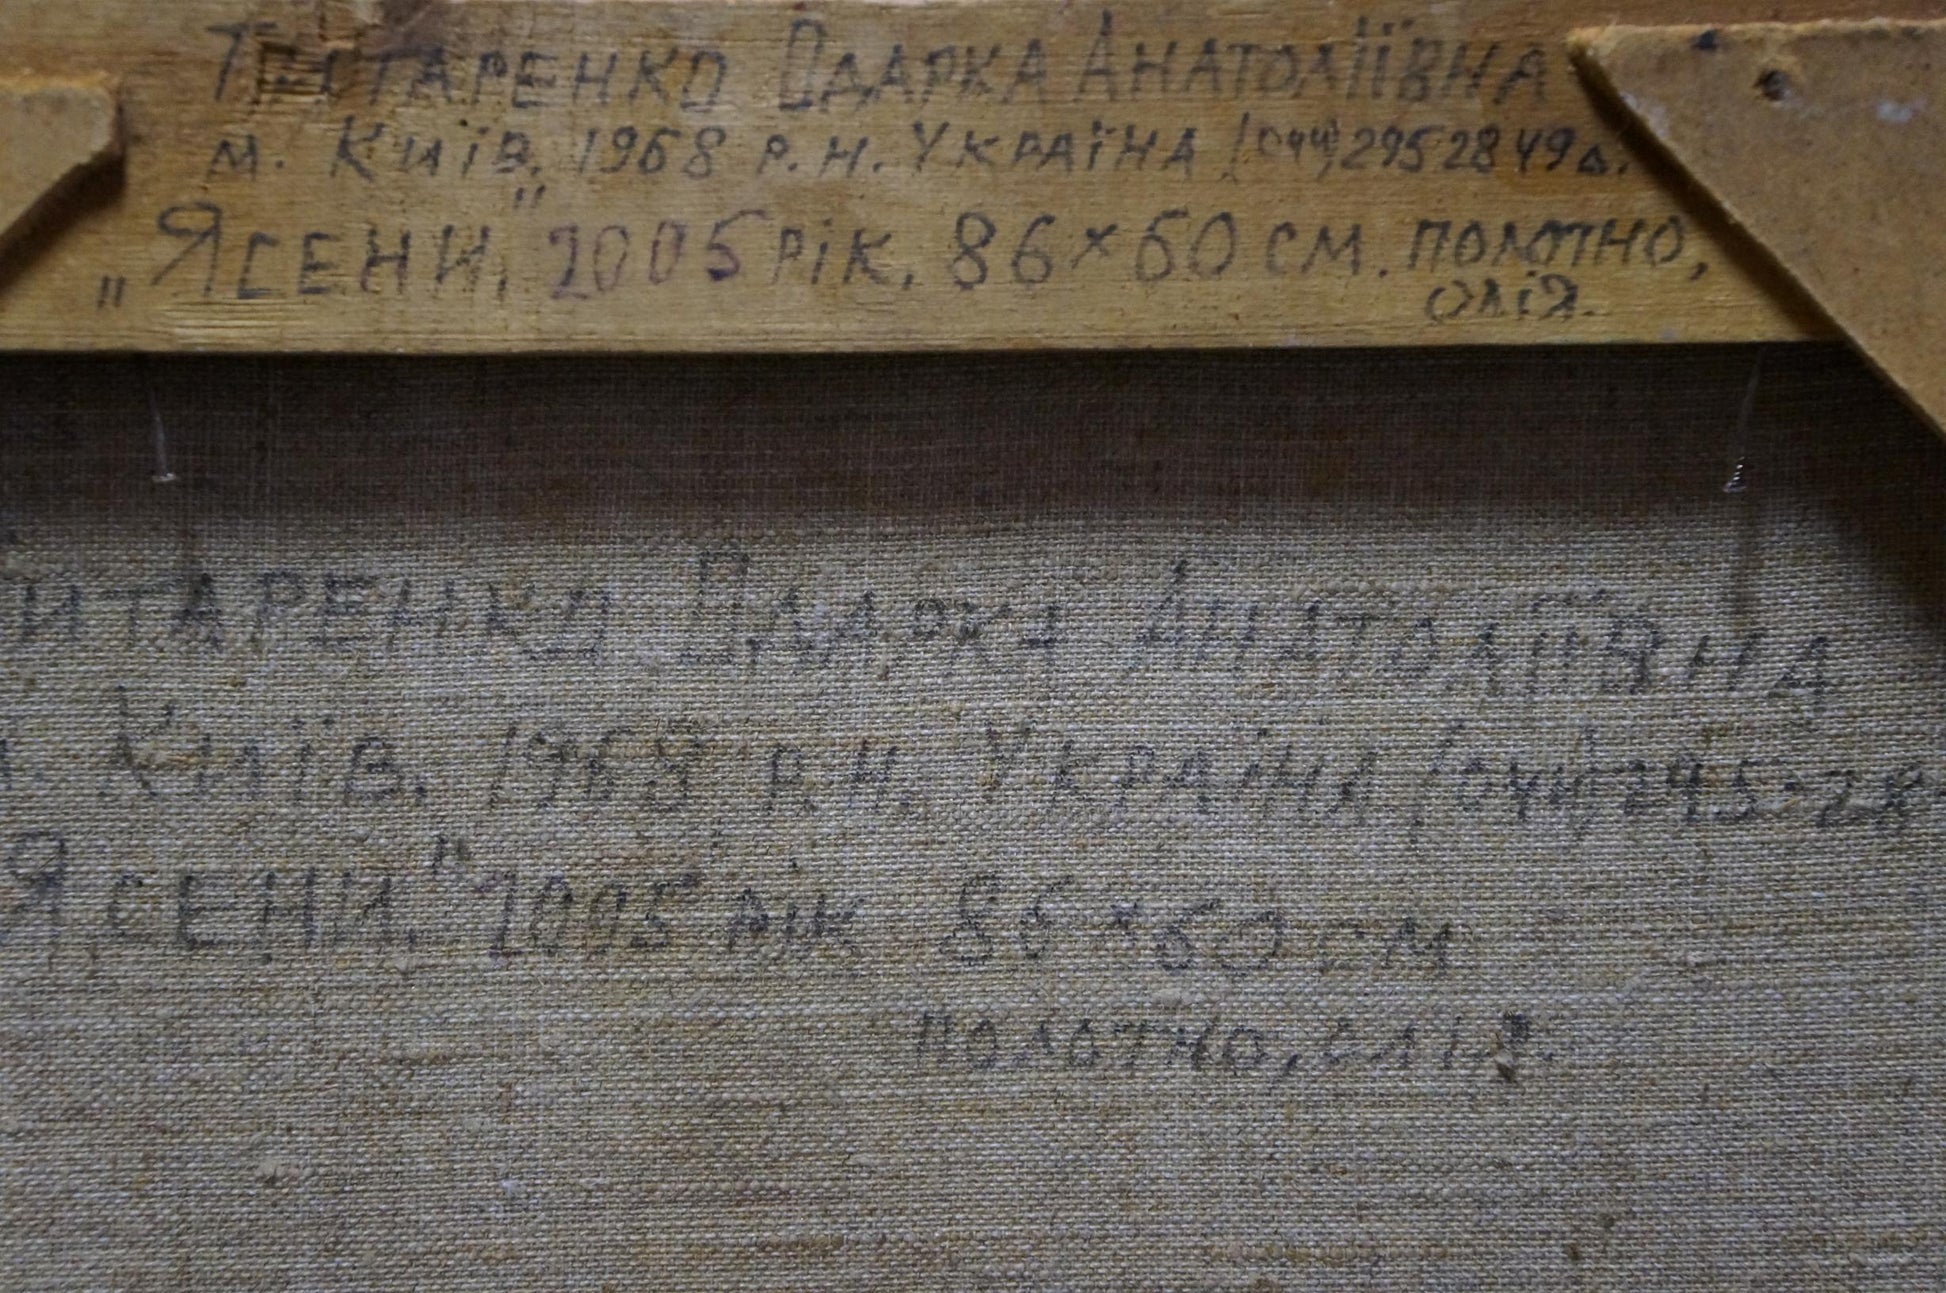 Титаренко Одарка Анатоліївна
м. Київ, 1968 р.н. Україна (044) 295 28 49 д.
„Ясени," 2005 рік, 86×60 см. полотно,
олія.
итаренко Одарка Анатоліївна
. Київ, 1968 р.н. Україна (044) 295-28
Ясени," 2005 рік 86×60 см
полотно, олія.